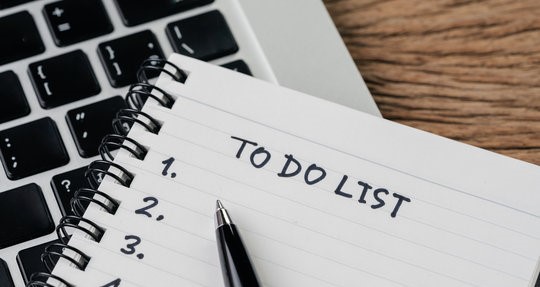 TO DO LIST
1.
2.
3.